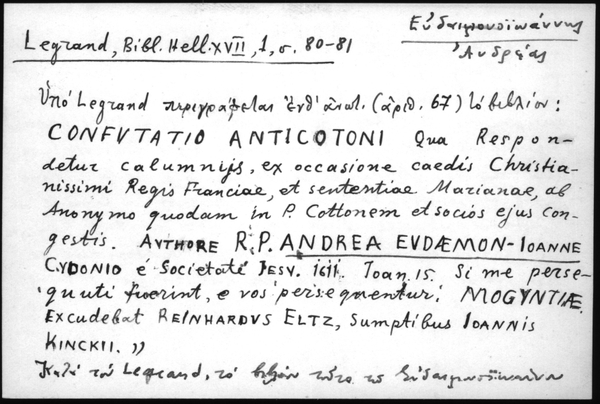 Εὐδαιμονοϊωάννης
Ἀνδρέας
Legrand, Bibl. Hell. XVII, 1, σ. 80-81
Ὑπό Legrand περιγράφεται (ἀριθ. 67) τό βιβλίον:
CONFVTATIO ANTICOTONI Qua Respon-
detur calumnijs, ex occasione caedis Christia-
nissimi Regis Franciae, et sententiae Marianae, ab
Anonymo quodam in P. Cottonem et socios ejus con-
gestis. AVTHORE R.P. ANDREA EVDÆMON-IOANNE
CYDONIO é Societaté IESV. 1611. Ioan. 15. Si me perse-
quuti fuerint, e vos persequentur. MOGVNTIÆ.
Excudebat REINHARDVS ELTZ, Sumptibus IOANNIS
KINCKII. »
Κατά τόν Legrand, τό βιβλίον τοῦτο τοῦ Εὐδαιμονοϊωάννου